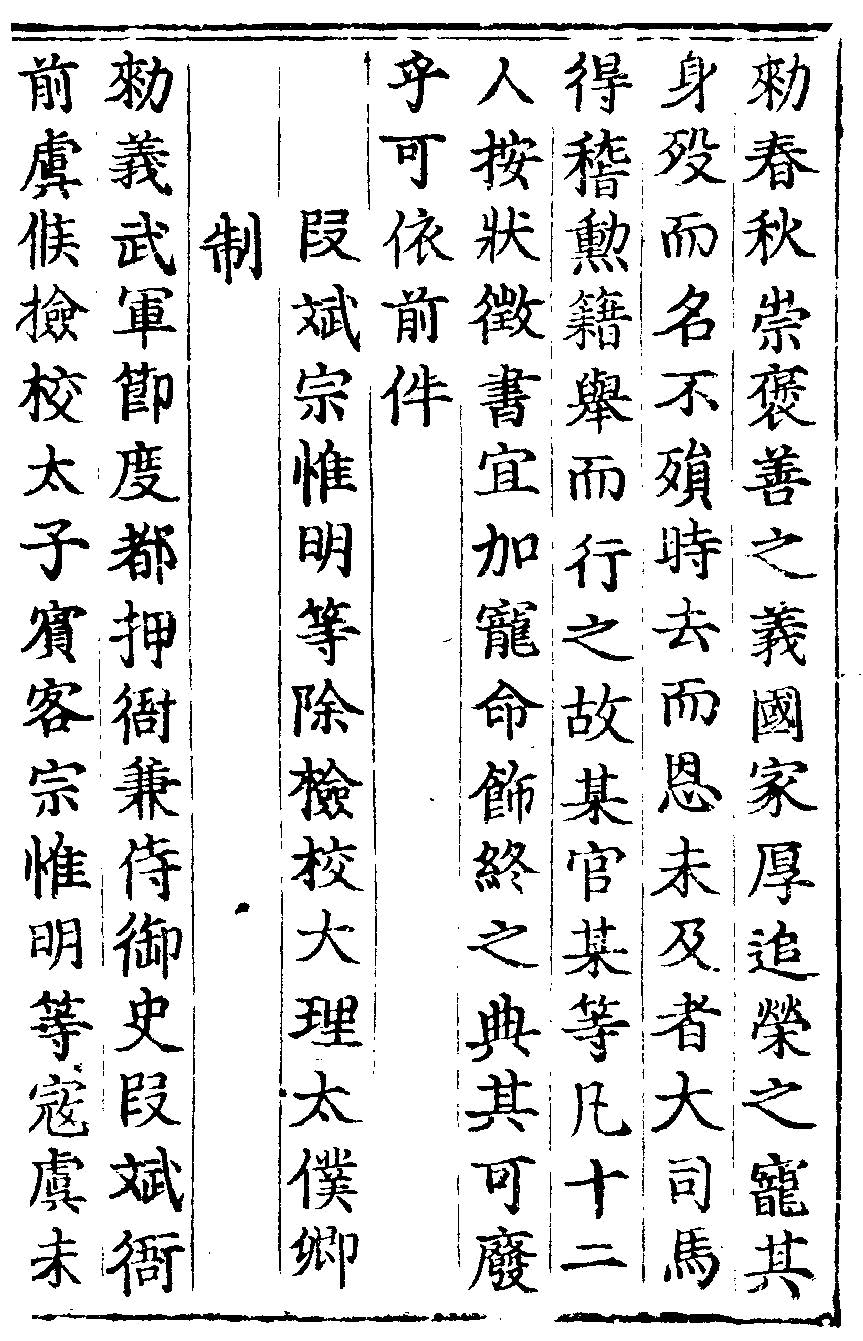 勑春秋崇褒善之義國家厚追榮之寵其
身歿而名不殞時去而恩未及者大司馬
得稽勳籍舉而行之故某官某等凡十二
人按狀徵書宜加寵命飾終之典其可廢
乎可依前件
段斌宗惟明等除檢校大理太僕卿
制
勑義武軍節度都押衙兼侍御史段斌衙
前虞候撿校太子賔客宗惟明等寇虞未